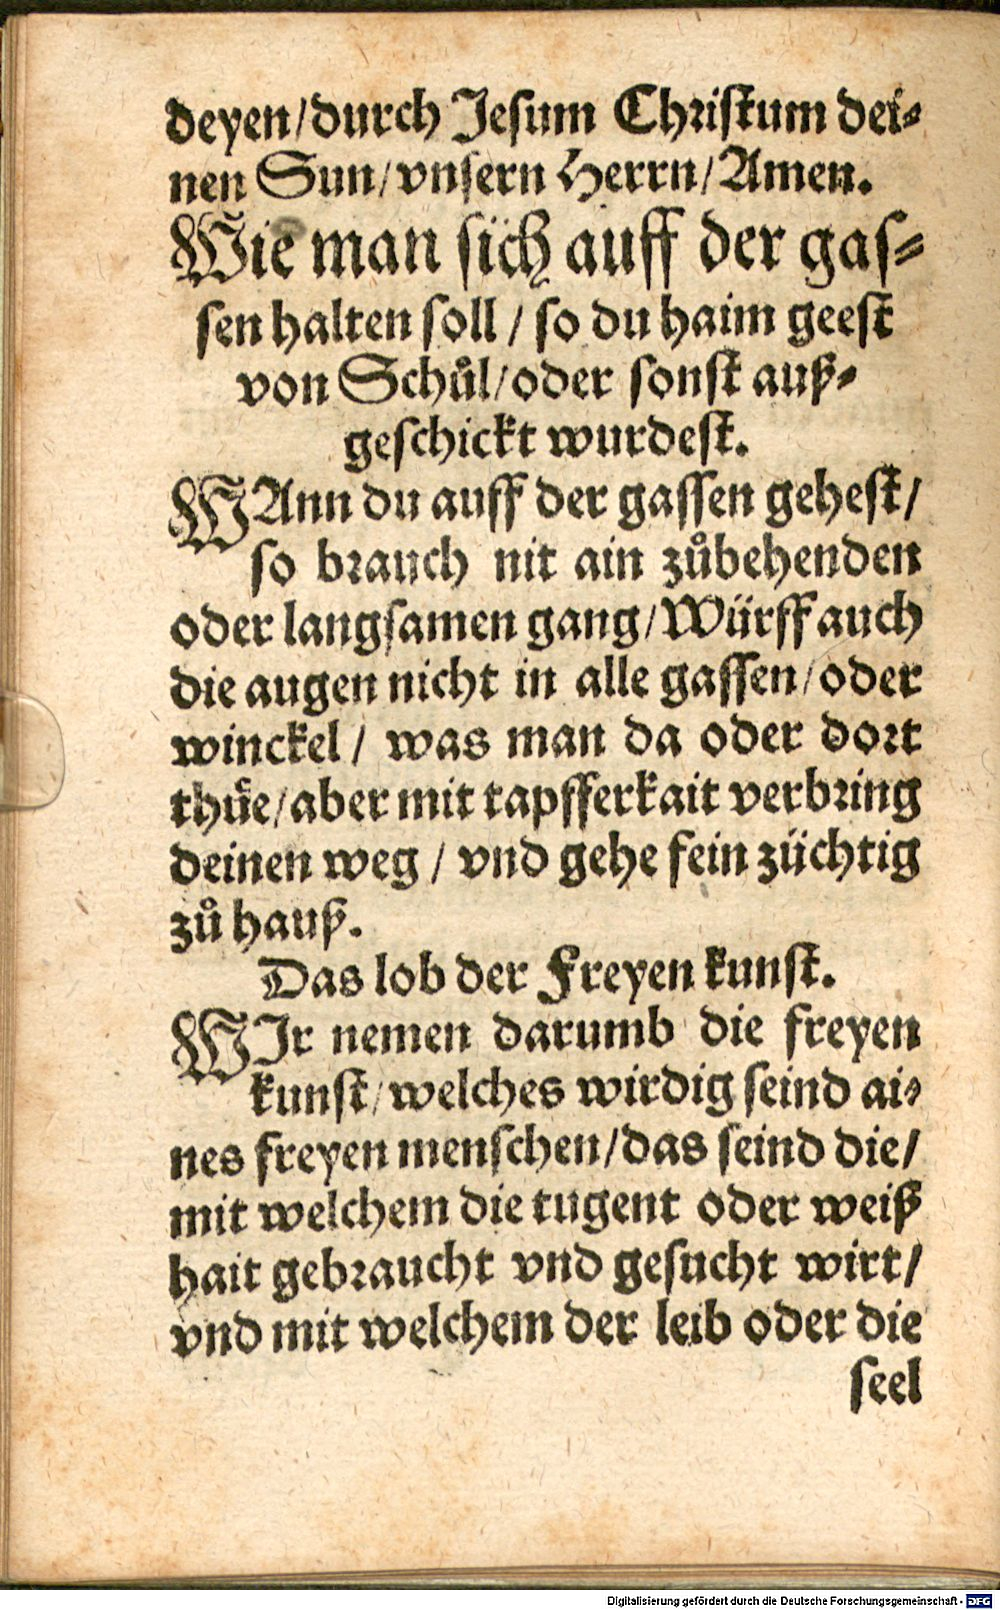 deyen/durch Jesum Christum dei⸗
nen Sun/vnsern Herrn/Amen.
Wie man sich auff der gas⸗
sen halten soll / so du haim geest
von Schůl/oder sonst auß⸗
geschickt wurdest.
WAnn du auff der gassen gehest/
so brauch nit ain zůbehenden
oder langsamen gang/Würff auch
die augen nicht in alle gassen/oder
winckel / was man da oder dort
thuͤe/aber mit tapfferkait verbring
deinen weg / vnd gehe fein züchtig
zů hauß.
Das lob der Freyen kunst.
WIr nemen darumb die freyen
kunst/welches wirdig seind ai⸗
nes freyen menschen/das seind die/
mit welchem die tugent oder weiß
hait gebraucht vnd gesucht wirt/
vnd mit welchem der leib oder die
seel
Digitalisierung gefördert durch die Deutsche Forschungsgemeinschaft - DFG